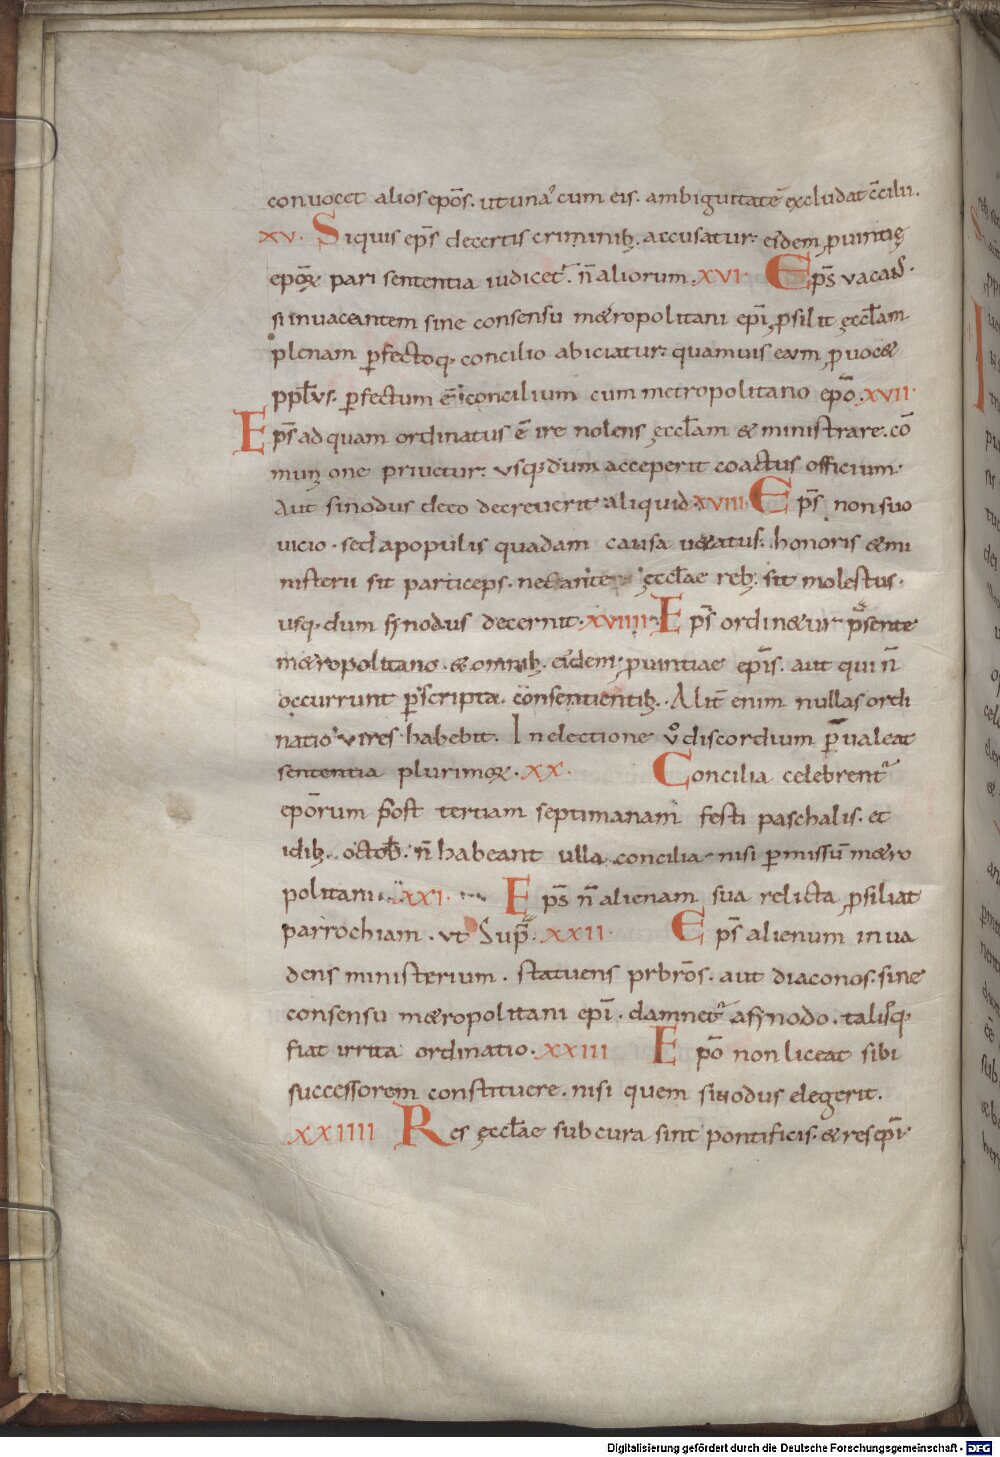 conuocet alios ep̄os. ut una cum eis. ambiguitatē excludat c̄cilii.
xv. Siquis ep̄s decertis criminib; accusatur: eiusdem ꝓuintię
epōꝝ pari sententia iudicet᷑. n̄ aliorum. XVI Ep̄s vacans.
si inuacantem sine consensu metropolitani ep̄i ꝓsilit ęccl̄am
plenam ꝑfectoq; concilio abiciatur: quamuis eam ꝓuocet
ppl̄us. ꝑfectum ē concilium cum metropolitano ep̄o. XVII
Ep̄s ad quam ordinatus ē ire nolens ęccl̄am & ministrare. cō
munione priuetur: usq; dum acceperit coactus officium.
Aut sinodus deeo decreuerit aliquid. XVIII Ep̄s non suo
uicio. sed apopulis quadam causa uetatus: honoris & mi
nisterii sit particeps. nec ante ęccl̄ae reb; sit molestus.
usq; dum synodus decernit. XVIIII Ep̄s ordinetur p̄sente
metropolitano. & omnib; eiusdem ꝓuintiae ep̄is. aut qui n̄
occurrunt ꝑ scripta. consentientib;. Alit̄ enim nullas ordi
natio uires habebit. In electione v̊ discordium p̄ualeat
sententia plurimoꝝ. XX. Concilia celebrent᷑
ep̄orum post tertiam septimanam festi paschalis. et
idib; octob̄. n̄ habeant ulla concilia nisi ꝑmissū metro
politani. XXI. Ep̄s n̄ alienam sua relicta ꝓsiliat
parrochiam. ut Sup̄. XXII Ep̄s alienum inua
dens ministerium. statuens prb̄ros. aut diaconos. sine
consensu metropolitani ep̄i. damnet᷑ asynodo. talisq;
fiat irrita ordinatio. XXIII Ep̄o non liceat sibi
successorem constituere. nisi quem sinodus elegerit.
XXIIII Res ęccl̄ae subcura sint pontificis. & res ep̄i
Digitalisierung gefördert durch die Deutsche Forschungsgemeinschaft - DFG